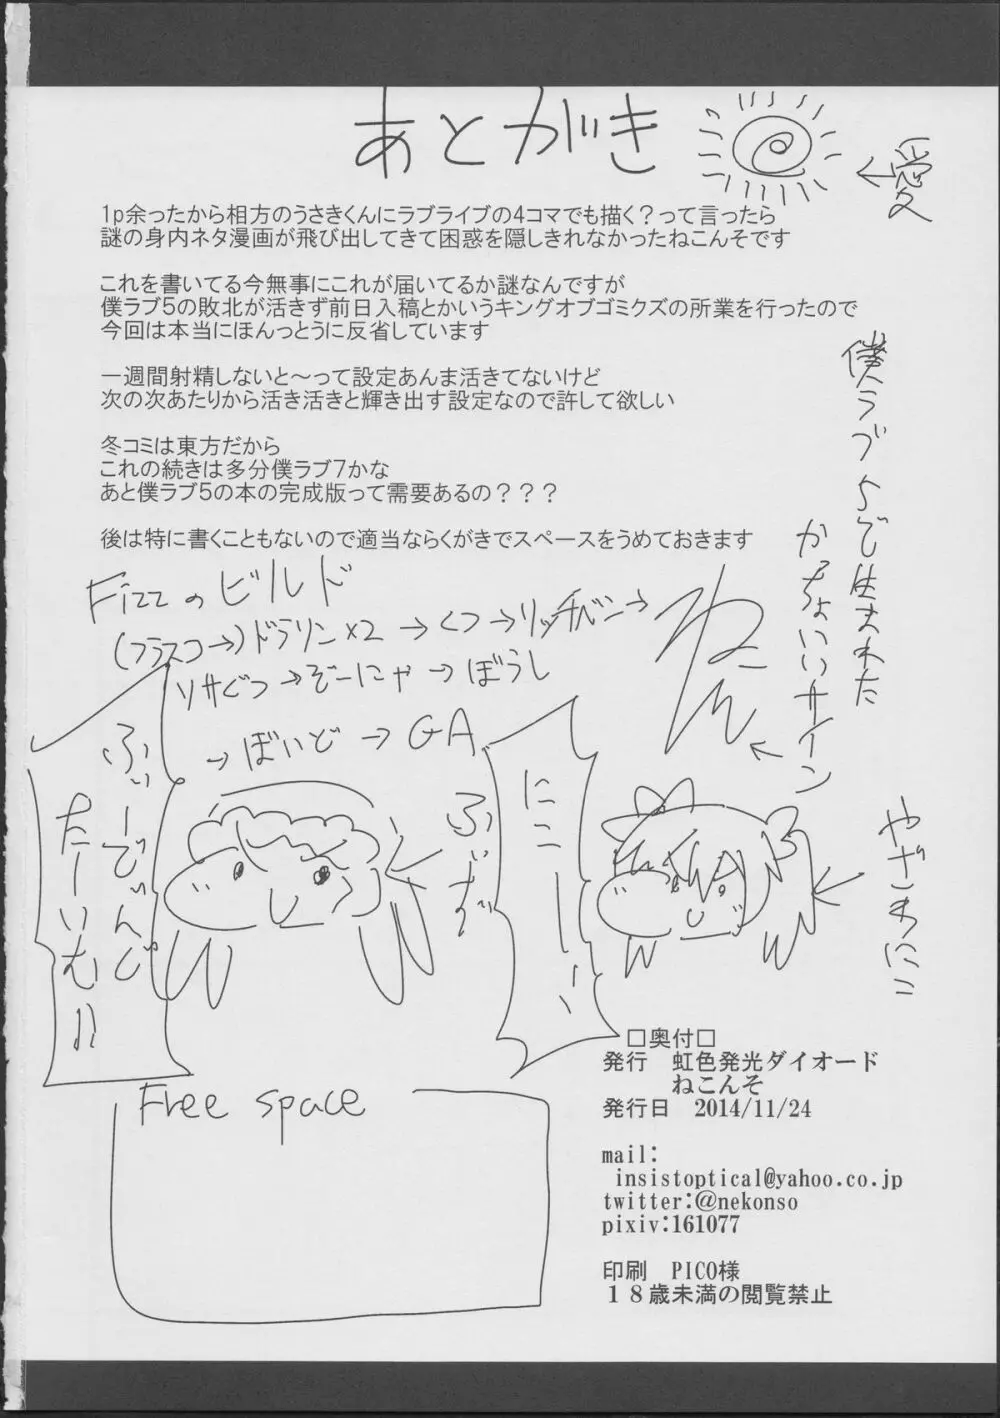 あとがき
←愛
1p余ったから相方のうさきくんにラブライブの4コマでも描く？って言ったら
謎の身内ネタ漫画が飛び出してきて困惑を隠しきれなかったねこんそです
これを書いてる今無事にこれが届いてるか謎なんですが
僕ラブ5の敗北が活きず前日入稿とかいうキングオブゴミクズの所業を行ったので
今回は本当にほんっとうに反省しています
一週間射精しないと～って設定あんま活きてないけど
次の次あたりから活き活きと輝き出す設定なので許して欲しい
冬コミは東方だから
これの続きは多分僕ラブ7かな
あと僕ラブ5の本の完成版って需要あるの？？？
後は特に書くこともないので適当ならくがきでスペースをうめておきます
僕ラブ5で生まれた
かっちょいいサイン
Fizzのビルド
(フラスコ→)ドラリン×2→くつ→リッチベン→
ソサぐつ→ぞーにゃ→ぼうし
→ぼいど→GA
ふぃず
ふぃーでぃんぐ
たーいむ!!
にこーーー
やざわにこ
Free space
□奥付□
発行　虹色発光ダイオード
ねこんそ
発行日　2014/11/24
mail:
insistoptical@yahoo.co.jp
twitter:@nekonso
pixiv:161077
印刷　PICO様
１８歳未満の閲覧禁止